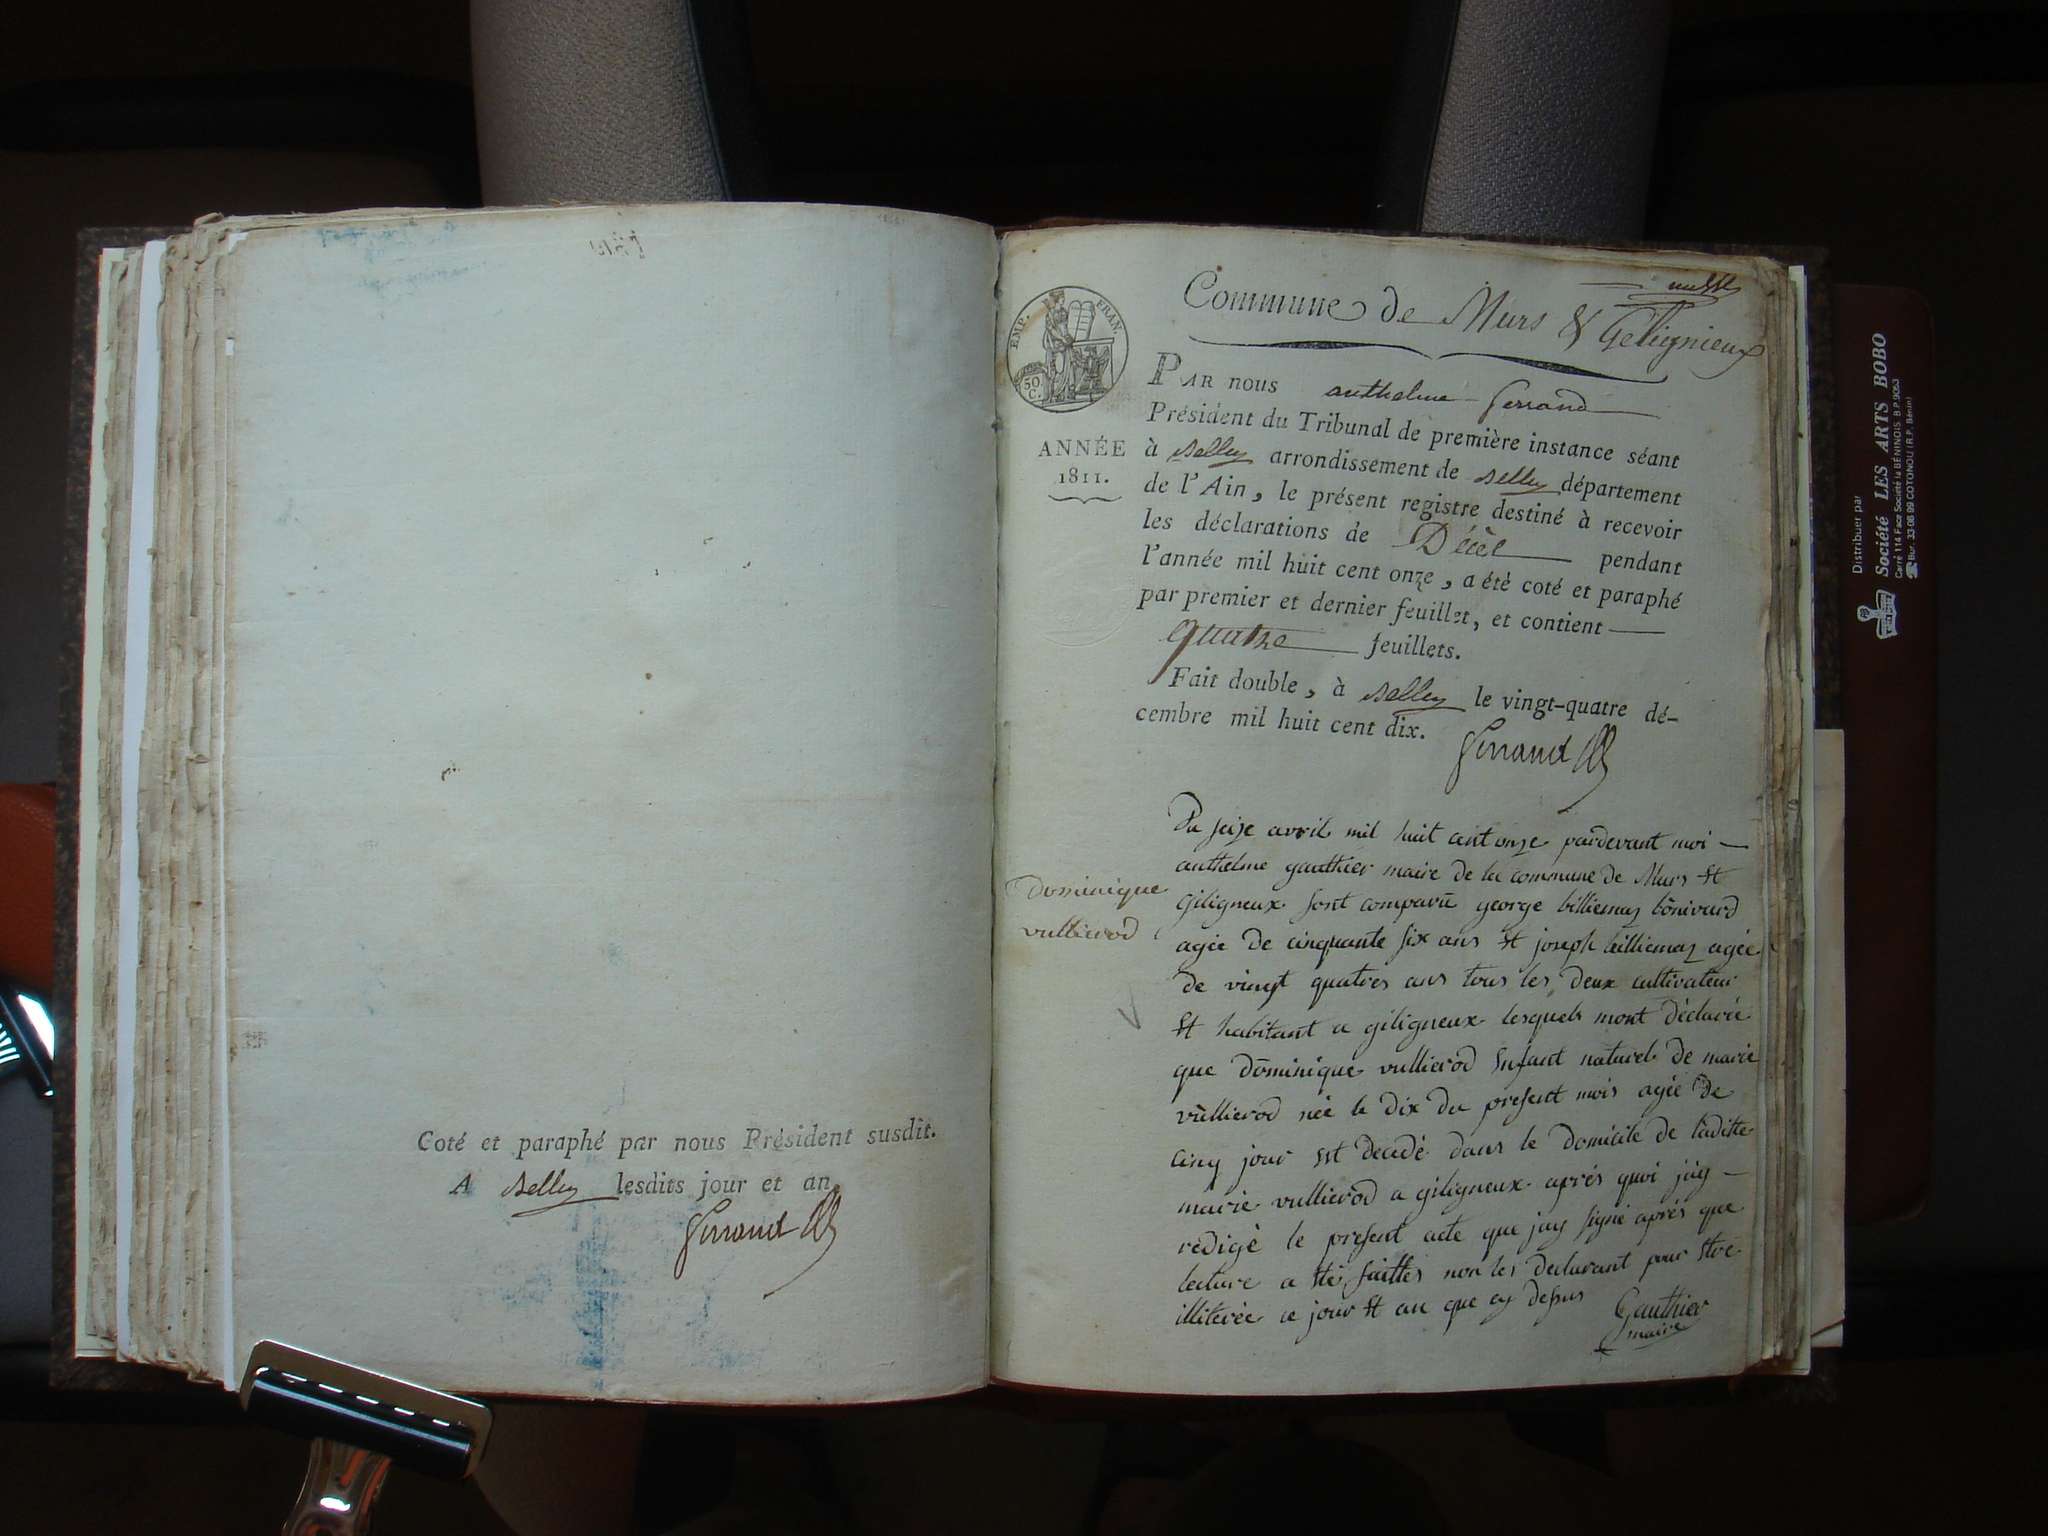 Coté et paraphé par nous Président susdit.
A Belley lesdits jour et an
Ferrand
Commune de Murs & Gelignieux
EMP. FRAN.
50 C.
ANNÉE
1811.
PAR nous anthelme Ferrand
Président du Tribunal de première instance séant
à Belley arrondissement de Belley département
de l'Ain, le présent registre destiné à recevoir
les déclarations de Décès pendant
l'année mil huit cent onze, a étè coté et paraphé
par premier et dernier feuillet, et contient
quatre feuillets.
Fait double, à Belley le vingt-quatre dé-
cembre mil huit cent dix.
Ferrand
dominique
vullierod
Du seize avril mil huit cent onze pardevant moi
anthelme gauthier maire de la commune de Murs et
giligneux sont comparu george billiemaz bônivard
agée de cinquante six ans et joseph billiemaz agée
de vingt quatres ans tous les deux cultivateur
et habitant a giligneux lesquels mont déclarée
que dominique vullierod enfant naturel de marie
vullierod née le dix du present mois agée de
cinq jour est decédé dans le domicile de laditte
marie vullierod a giligneux après quoi jay
redigé le present acte que jay signé après que
lecture a été faittes non les declarant pour etre
illiterée ce jour et an que cy dessus
Gauthier
maire
Distribuer par
Société LES ARTS BOBO
Carré 114 Face Société la BÉNINOIS B.P. 9053
Bur. 33 06 99 COTONOU (R.P. Bénin)